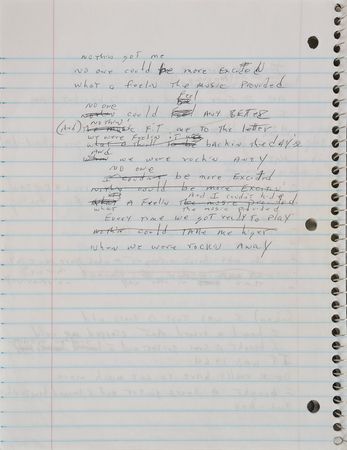 nothin got me
no one could be more Excited
what a feelin the music provided
Feel
no one
could ANY BETTER
nothin'
(And) the music FIT me to the letter
we were Feelin it
what a thrill to be back in the day's
And
when we were rockin Away
no one
I couldnt be more Excited
nothin could be more Excitin
And I couldnt hide
A Feelin the music provided
what the music provided
Every time we got ready to play
nothin could TAKE me higer
when we were rockin Away